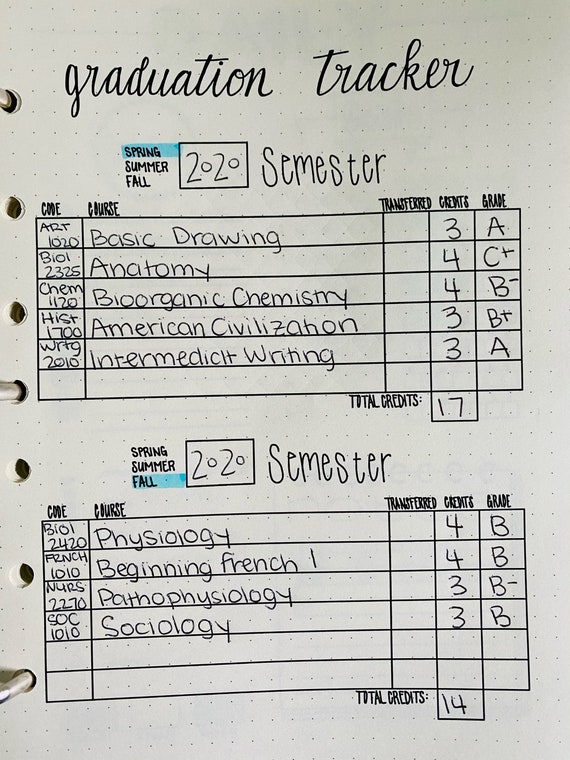 graduation tracker
SPRING
SUMMER
FALL
2020 Semester
CODE COURSE TRANSFERRED CREDITS GRADE
ART 1020 Basic Drawing 3 A
Biol 2325 Anatomy 4 C+
Chem 1120 Bioorganic Chemistry 4 B-
Hist 1700 American Civilization 3 B+
Wrtg 2010 Intermedicit Writing 3 A
TOTAL CREDITS: 17
SPRING
SUMMER
FALL
2020 Semester
CODE COURSE TRANSFERRED CREDITS GRADE
Biol 2420 Physiology 4 B
FRNCH 1010 Beginning French 1 4 B
NURS 2270 Pathophysiology 3 B-
SOC 1010 Sociology 3 B
TOTAL CREDITS: 14